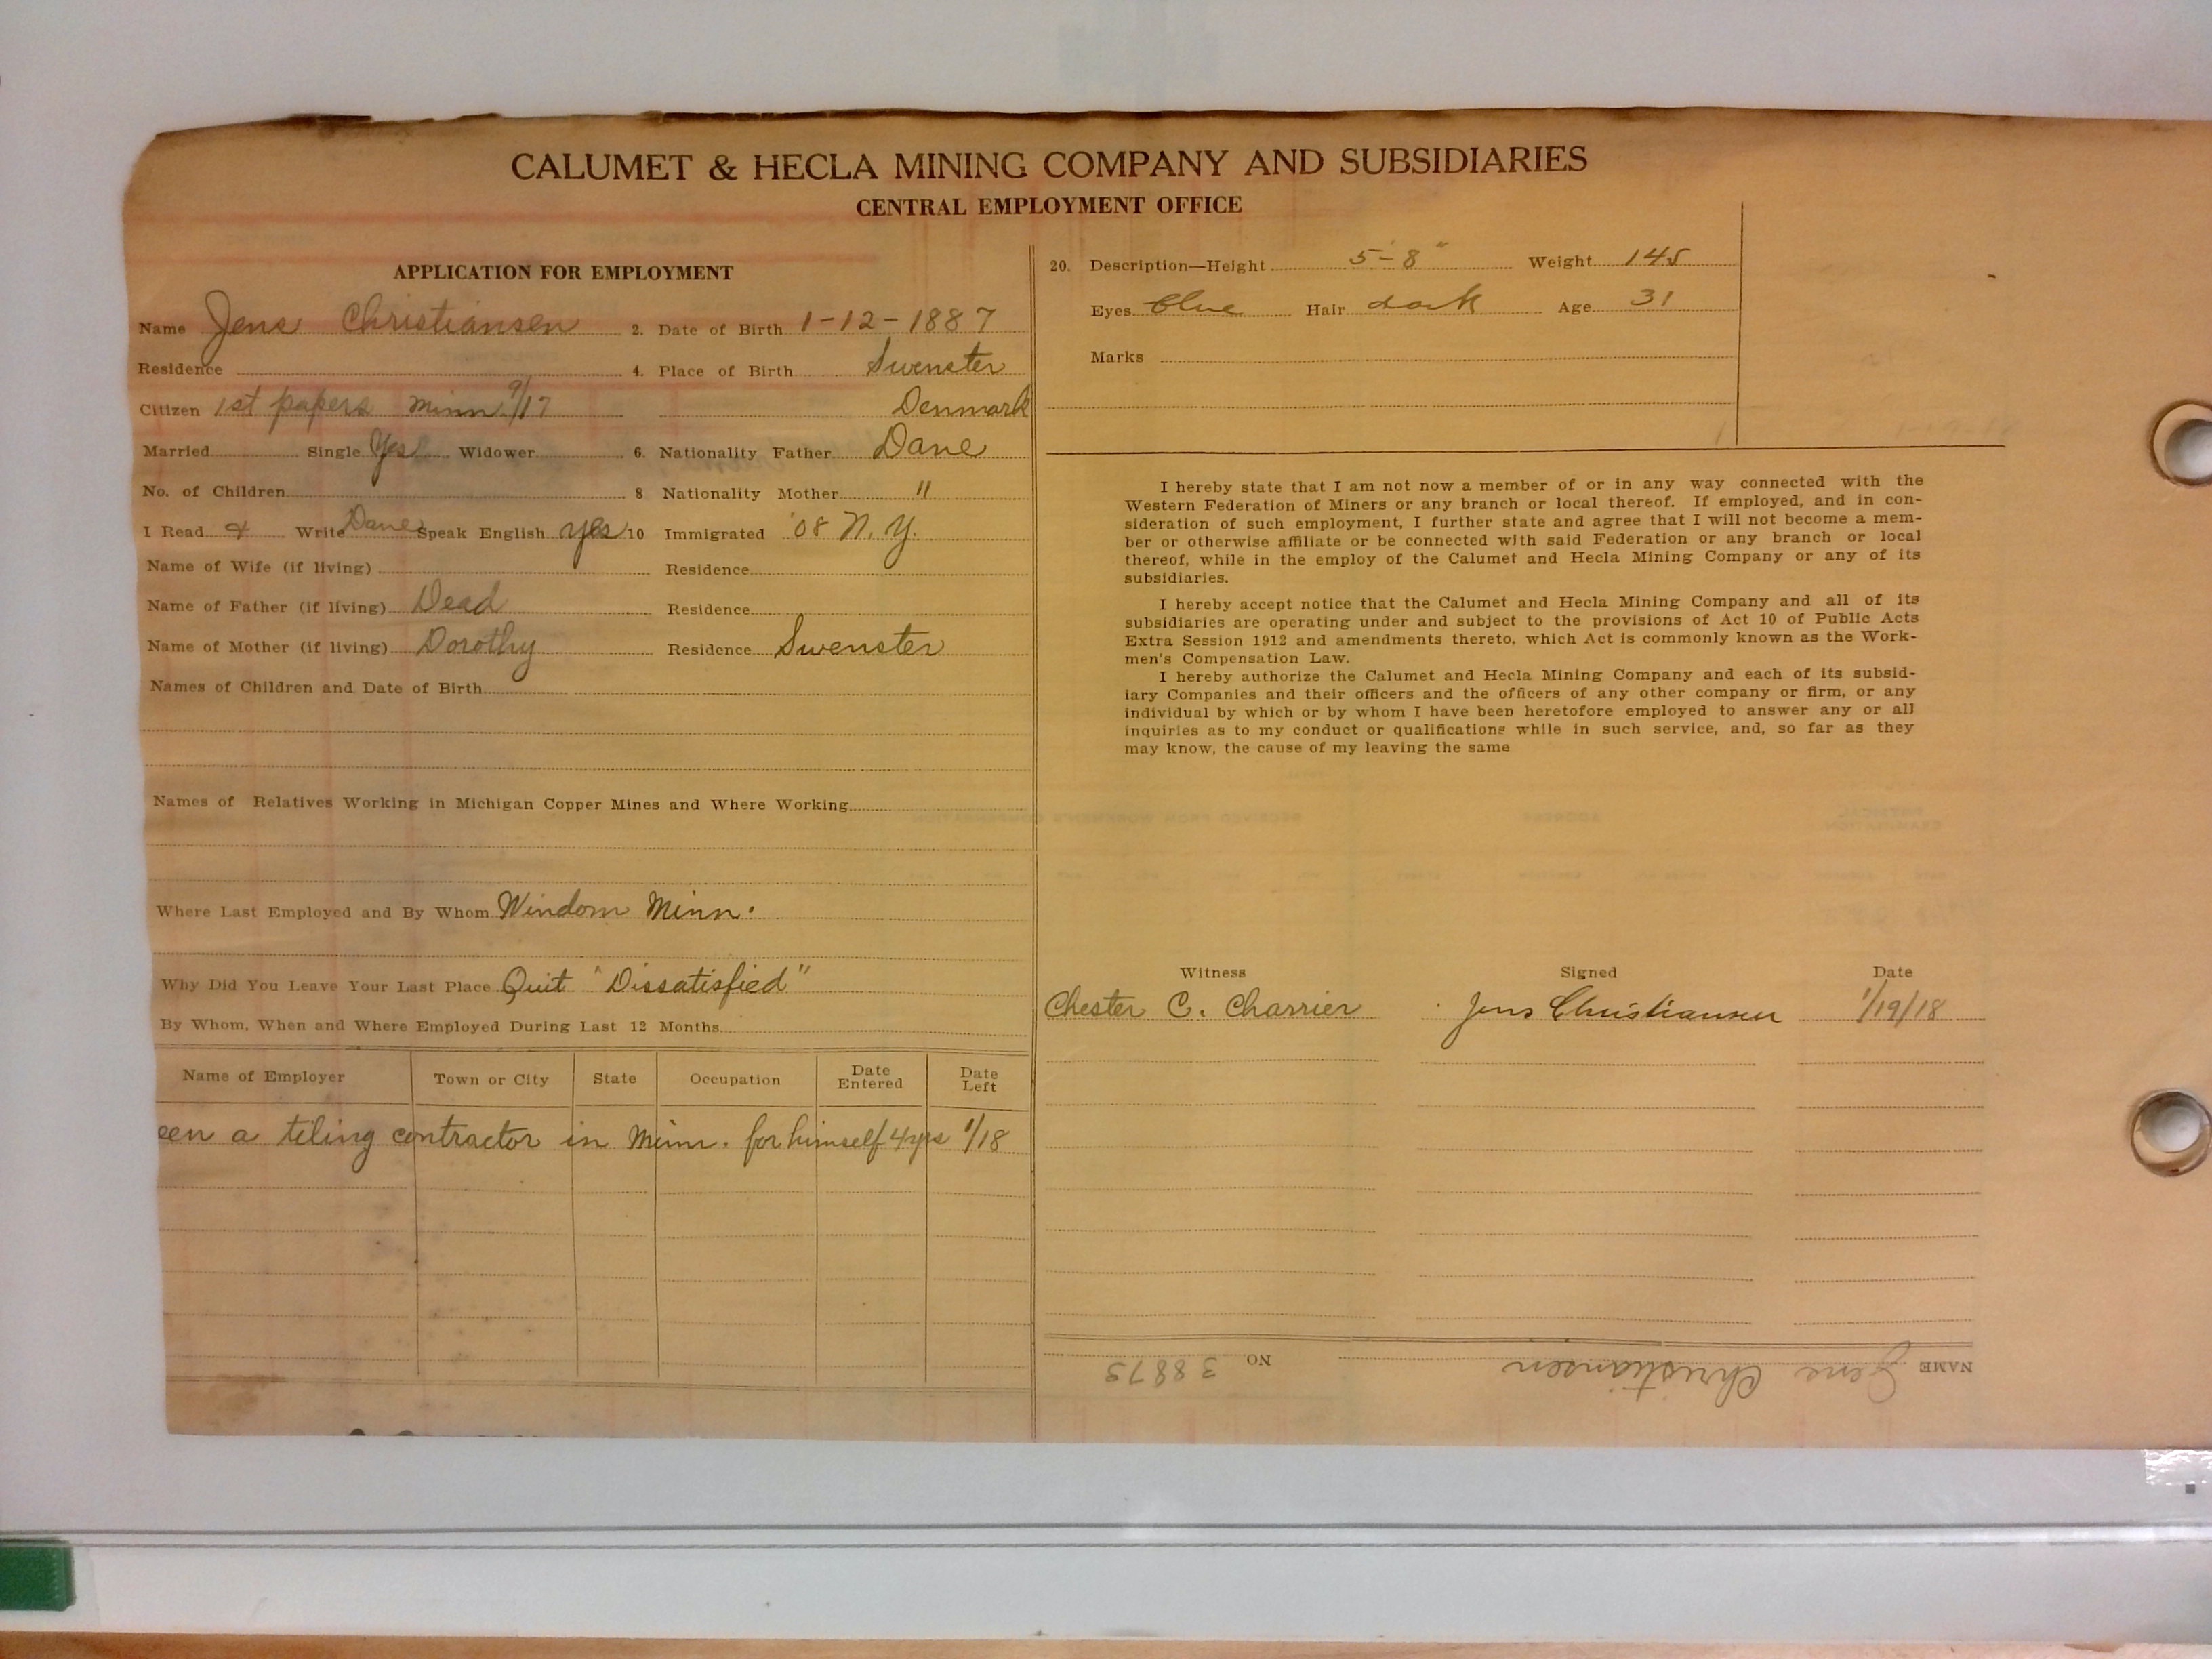 CALUMET & HECLA MINING COMPANY AND SUBSIDIARIES
CENTRAL EMPLOYMENT OFFICE
APPLICATION FOR EMPLOYMENT
Name Jens Christiansen 2. Date of Birth 1-12-1887
Residence 4. Place of Birth Swenster
Citizen 1st papers Minn. 9/17 Denmark
Married Single Yes Widower 6. Nationality Father Dane
No. of Children 8 Nationality Mother "
I Read & Write Dane Speak English yes 10 Immigrated '08 N. Y.
Name of Wife (if living) Residence
Name of Father (if living) Dead Residence
Name of Mother (if living) Dorothy Residence Swenster
Names of Children and Date of Birth
Names of Relatives Working in Michigan Copper Mines and Where Working
Where Last Employed and By Whom Windom Minn.
Why Did You Leave Your Last Place Quit "Dissatisfied"
By Whom, When and Where Employed During Last 12 Months
Name of Employer Town or City State Occupation Date Entered Date Left
een a tiling contractor in Minn. for himself 4 yrs 1/18
20. Description—Height 5'-8" Weight 145
Eyes blue Hair dark Age 31
Marks
I hereby state that I am not now a member of or in any way connected with the
Western Federation of Miners or any branch or local thereof. If employed, and in con-
sideration of such employment, I further state and agree that I will not become a mem-
ber or otherwise affiliate or be connected with said Federation or any branch or local
thereof, while in the employ of the Calumet and Hecla Mining Company or any of its
subsidiaries.
I hereby accept notice that the Calumet and Hecla Mining Company and all of its
subsidiaries are operating under and subject to the provisions of Act 10 of Public Acts
Extra Session 1912 and amendments thereto, which Act is commonly known as the Work-
men's Compensation Law.
I hereby authorize the Calumet and Hecla Mining Company and each of its subsid-
iary Companies and their officers and the officers of any other company or firm, or any
individual by which or by whom I have been heretofore employed to answer any or all
inquiries as to my conduct or qualifications while in such service, and, so far as they
may know, the cause of my leaving the same
Witness Signed Date
Chester C. Charrier Jens Christiansen 1/19/18
NAME Jens Christiansen NO 38875